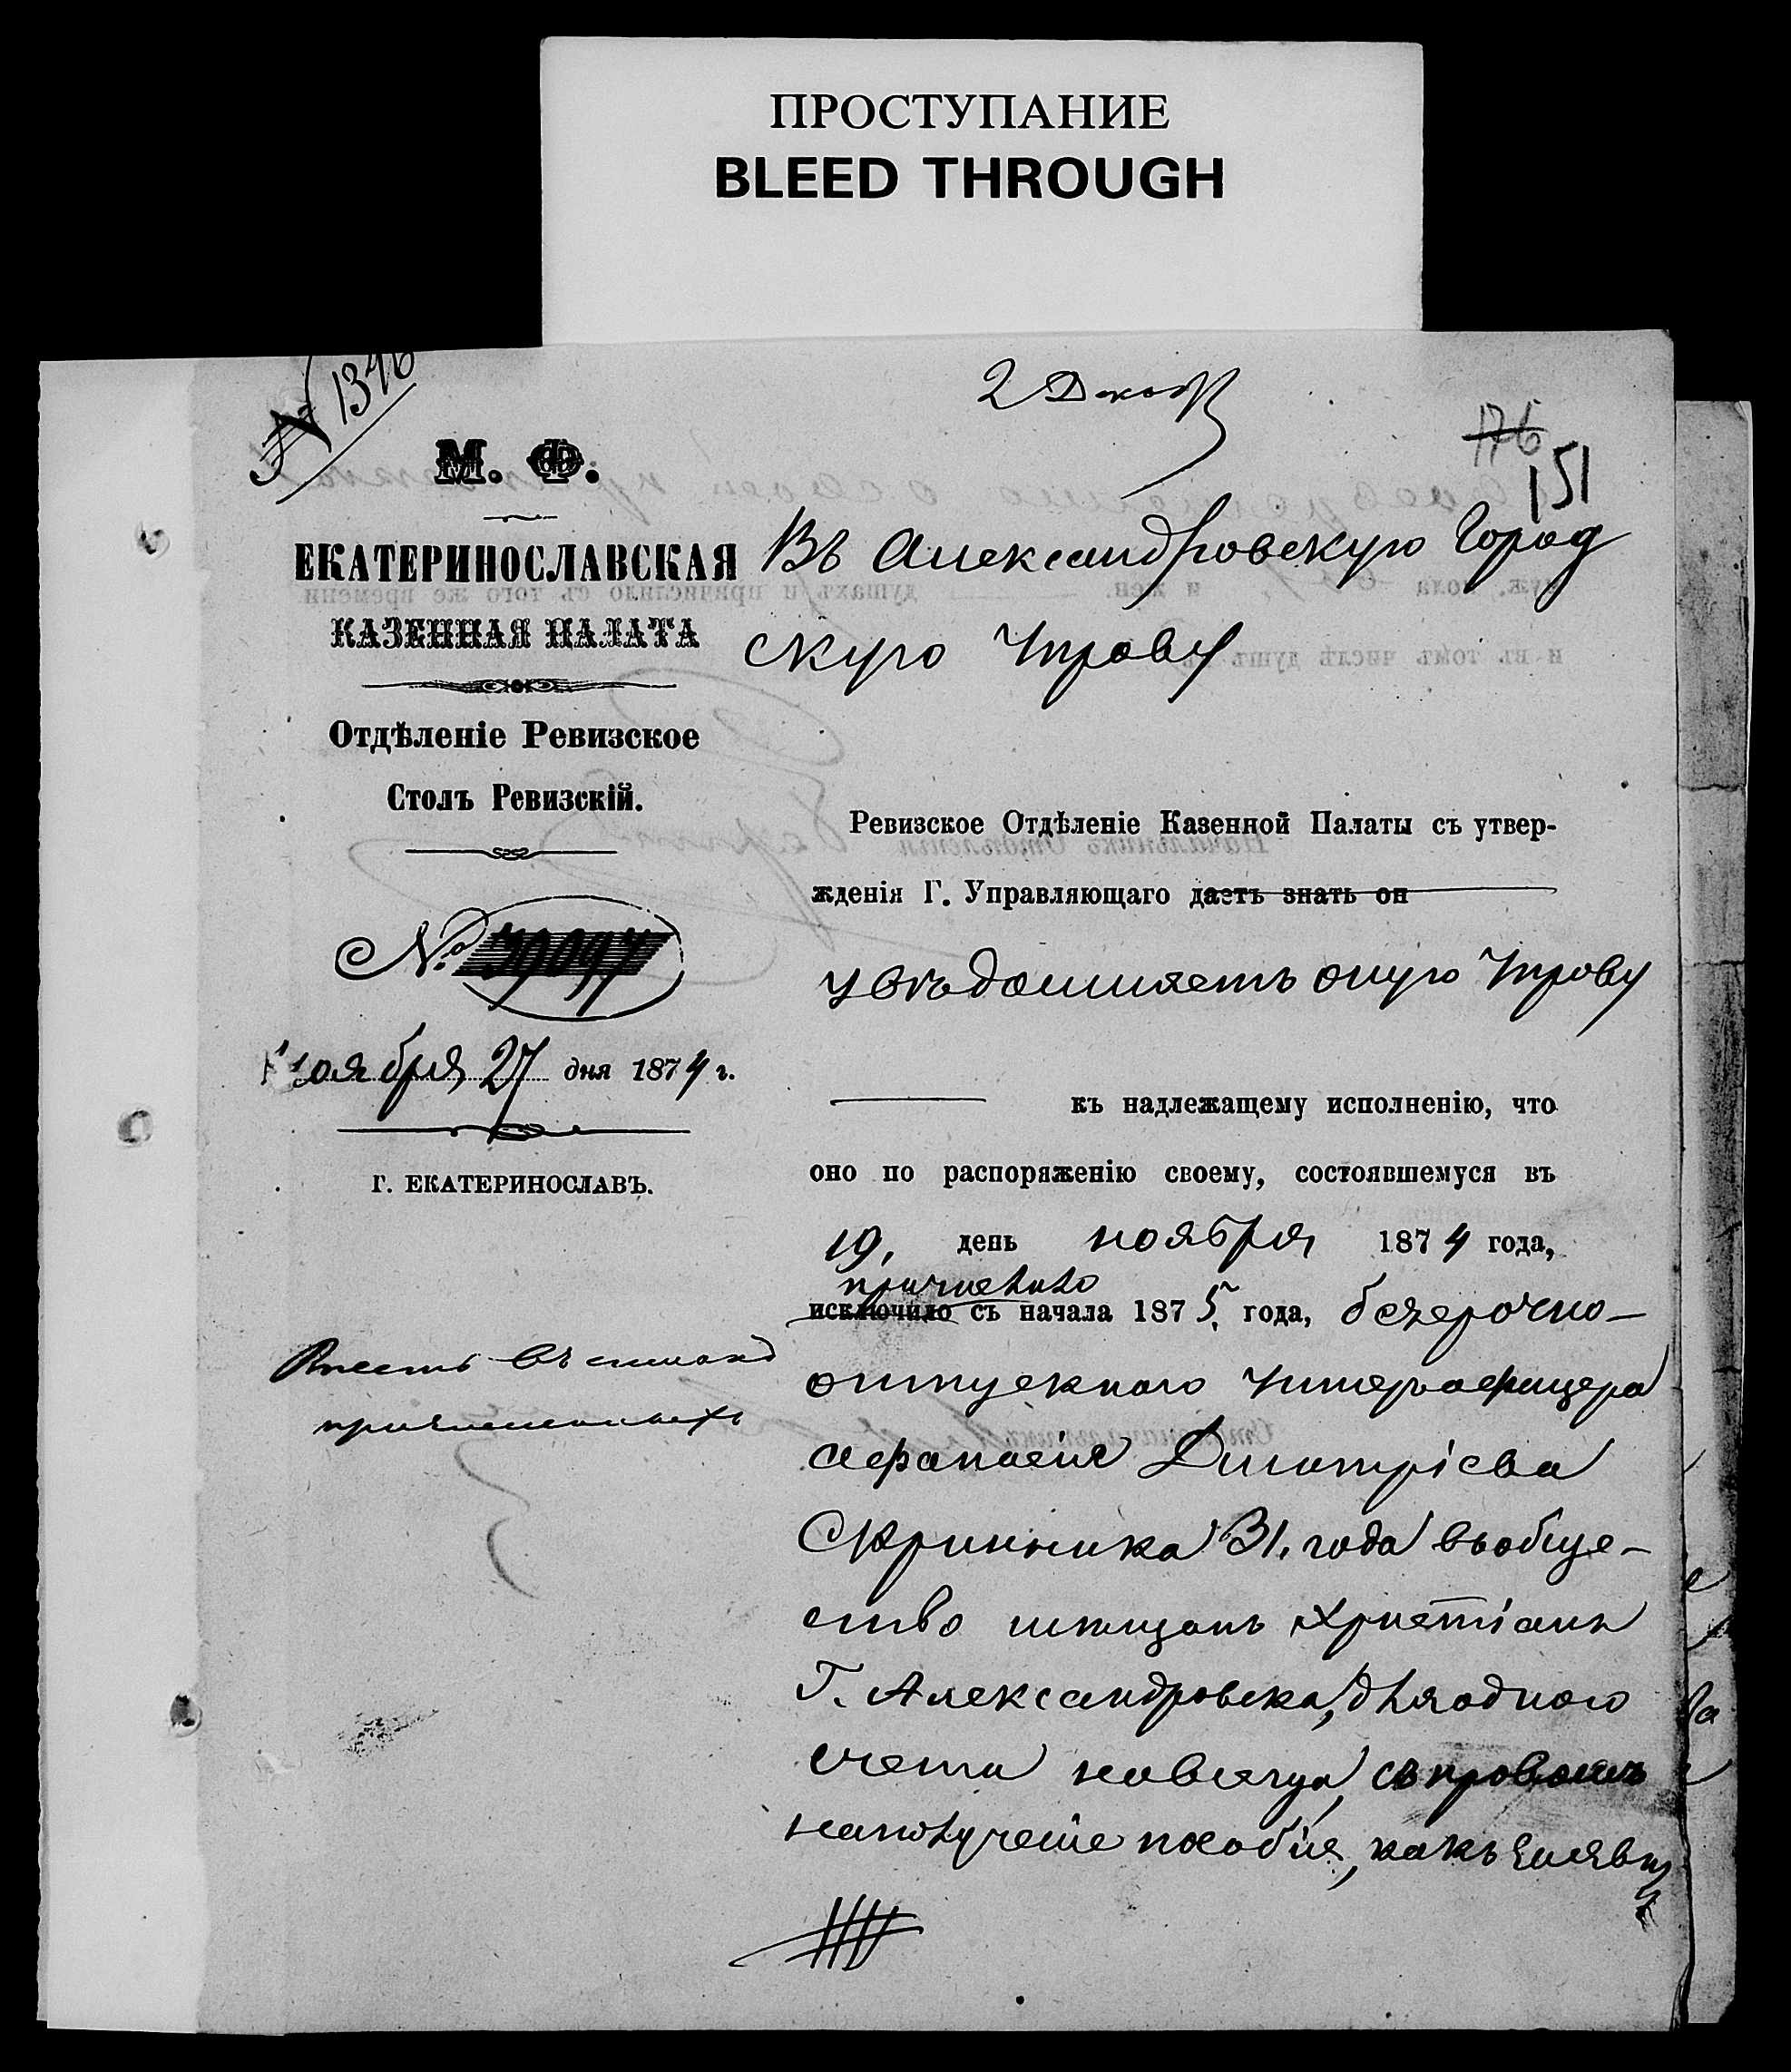 ПРОСТУПАНИЕ
BLEED THROUGH
2 Декаб
№ 1376
176
151
М. Ф.
ЕКАТЕРИНОСЛАВСКАЯ
КАЗЕННАЯ ПАЛАТА
Отдѣленіе Ревизское
Столъ Ревизскій.
№ 39097
Ноября 27 дня 1874 г.
Г. ЕКАТЕРИНОСЛАВЪ.
Внесть въ списокъ
причисленныхъ
Въ Александровскую Город
скую Управу
Ревизское Отдѣленіе Казенной Палаты съ утвер-
жденія Г. Управляющаго даетъ знать он
увѣдомляетъ оную Управу
къ надлежащему исполненію, что
оно по распоряженію своему, состоявшемуся въ
19, день ноября 1874 года,
причислило
исключило съ начала 1875 года, безсрочно-
отпускного Унтеръ-офицера
Афанасія Дмитріева
Скринника 31, года въ обще-
ство мѣщанъ христіанъ
Г. Александровска, для одного
счета навсегда, съ правомъ
на полученіе пособія, какъ